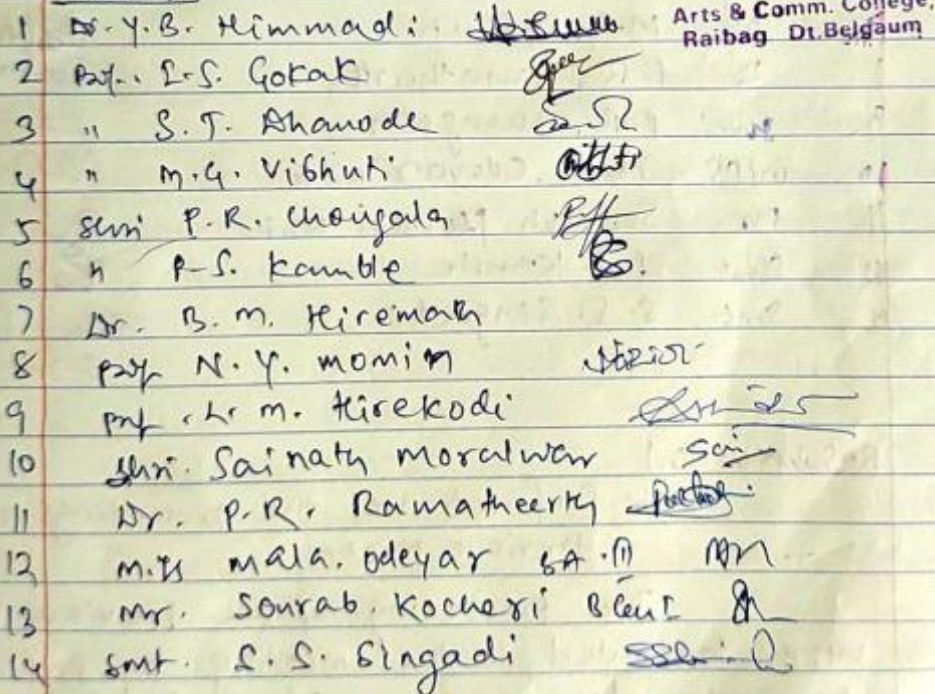 Arts & Comm. College,
Raibag Dt. Belgaum
1 Dr. Y.B. Himmadi
2 Prof. L.S. Gokak
3 " S.T. Dhamode
4 " M.G. Vibhuti
5 Shri P.R. Chougala
6 " P.S. Kamble
7 Dr. B.M. Hiremath
8 Prof N.Y. Momin
9 Prof. L. M. Hirekodi
10 Shri. Sainath Moralwar Sai
11 Dr. P.R. Ramatheerth
12 Miss Mala. Odeyar BA.III
13 Mr. Sourab. Kocheri B Com I
14 Smt. S.S. Singadi